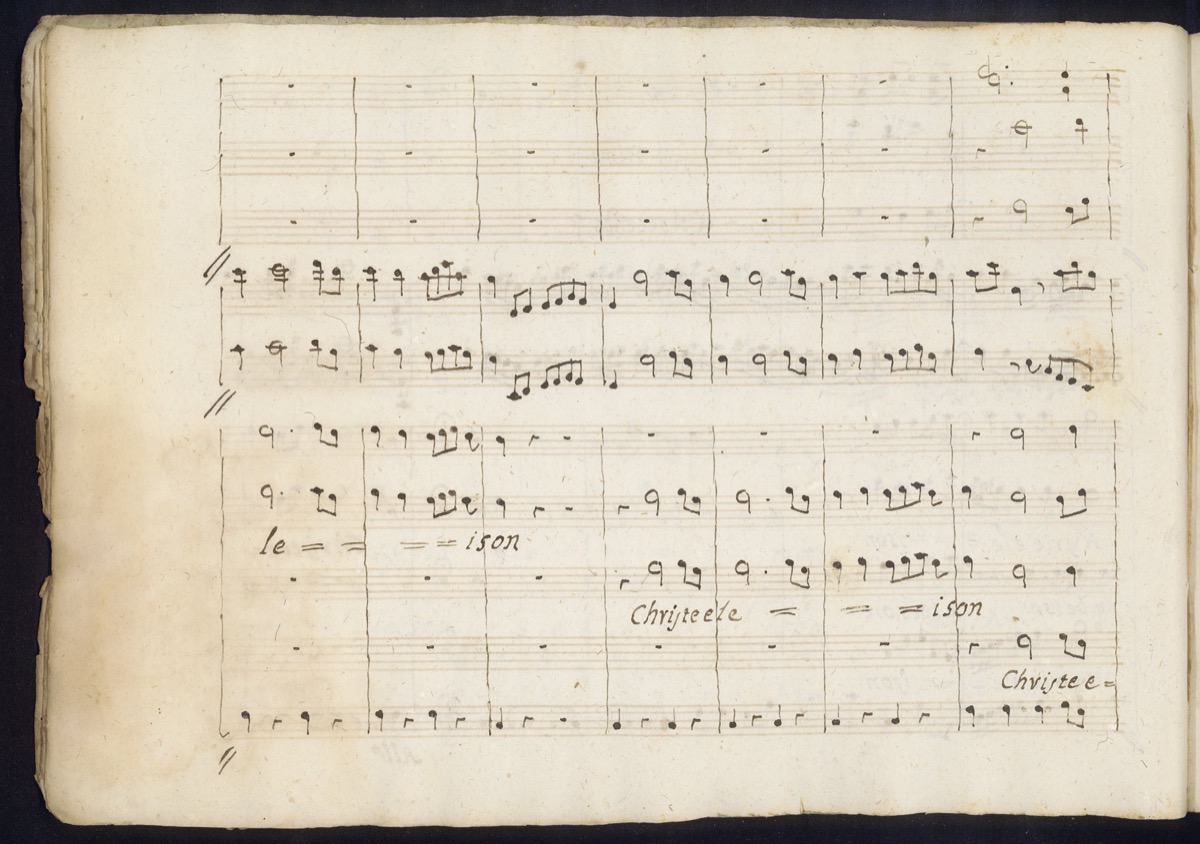 le = = = = ison
Christe ele = = = ison
Christe e=